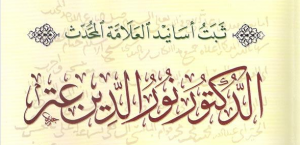 ثَبَتُ أَسَانِيدِ العَلَّامَةِ المُحَدِّثِ
الدُّكْتُور نُورُ الدِّين عِتر